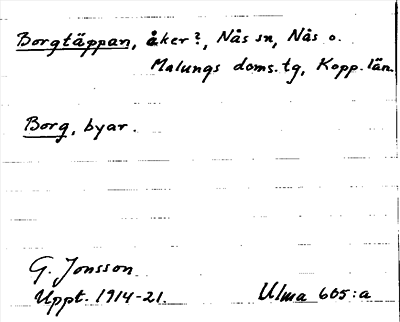 Borgtäppan, åker?, Nås sn, Nås o.
Malungs doms. tg, Kopp. län.
Borg, byar.
G. Jonsson
Uppt. 1914-21.
Ulma 605:a